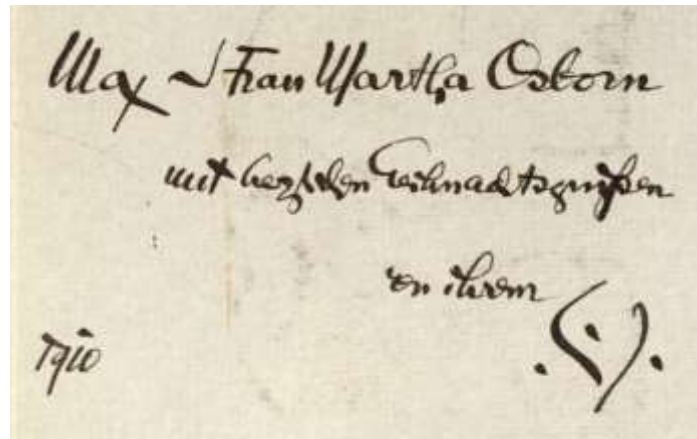 Max & Frau Martha Osborn
mit herzlichen Weihnachtsgrüßen
von ihrem
1910